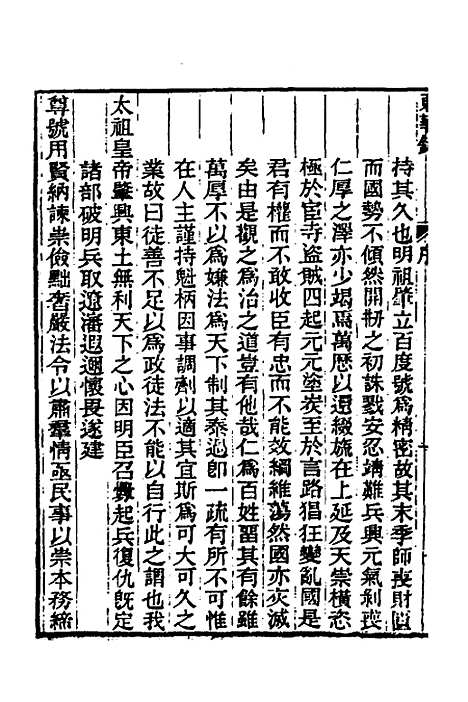 東華錄 序
持其久也明祖肇立百度號為精密故其末季師喪財匱
而國勢不傾然開剏之初誅戮安忍靖難兵興元氣剝喪
仁厚之澤亦少竭焉萬歷以還綴旒在上延及天崇橫恣
極於宦寺盜賊四起元元塗炭至於言路猖狂變亂國是
君有權而不敢收臣有忠而不能效綱維蕩然國亦夾滅
矣由是觀之為治之道豈有他哉仁為百姓畱其有餘雖
萬厚不以為嫌法為天下制其泰過卽一疏有所不可惟
在人主謹持魁柄因事調劑以適其宜斯為可大可久之
業故曰徒善不足以為政徒法不能以自行此之謂也我
太祖皇帝肇興東土無利天下之心因明臣召釁起兵復仇旣定
諸部破明兵取遼瀋遐邇懷畏遂建
尊號用賢納諫崇儉黜奢嚴法令以肅羣情亟民事以崇本務締